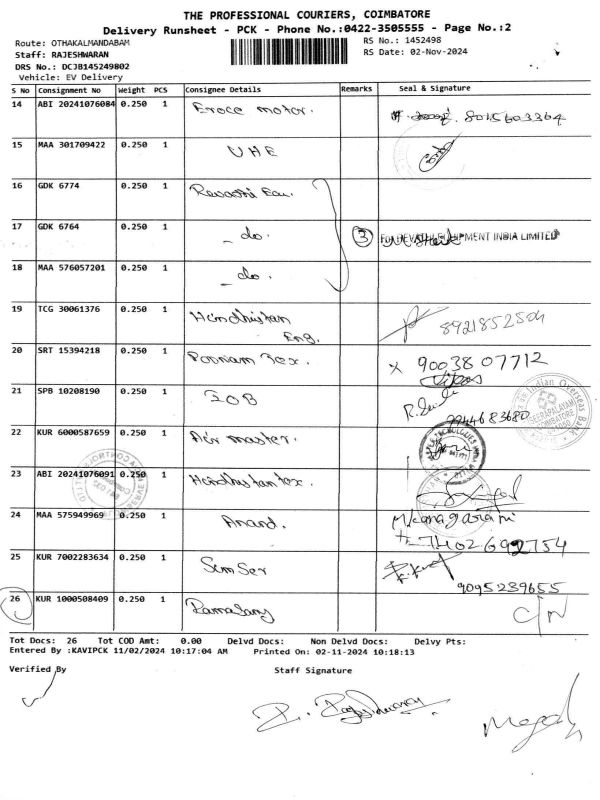 THE PROFESSIONAL COURIERS, COIMBATORE
Delivery Runsheet - PCK - Phone No.:0422-3505555 - Page No.:2
Route: OTHAKALMANDABAM
RS No.: 1452498
Staff: RAJESHWARAN
RS Date: 02-Nov-2024
DRS No.: DCJB145249802
Vehicle: EV Delivery
S No Consignment No Weight PCS Consignee Details Remarks Seal & Signature
14 ABI 20241076084 0.250 1 Eroce motor. 8015603364
15 MAA 301709422 0.250 1 UHE
16 GDK 6774 0.250 1
17 GDK 6764 0.250 1 - do. 3 INDIA LIMITED
18 MAA 576057201 0.250 1 - do.
19 TCG 30061376 0.250 1 Hindhustan Eng. 8921852504
20 SRT 15394218 0.250 1 Poonam Tex. x 90038 07712
21 SPB 10208190 0.250 1 IOB 9944683680
Indian Overseas Bank
22 KUR 6000587659 0.250 1 Air master.
23 ABI 20241076091 0.250 1 Hindhustan tex.
24 MAA 575949969 0.250 1 Anand. 7402692754
25 KUR 7002283634 0.250 1 SunSer 9095239655
26 KUR 1000508409 0.250 1 Ramasamy C/N
Tot Docs: 26 Tot COD Amt: 0.00 Delvd Docs: Non Delvd Docs: Delvy Pts:
Entered By :KAVIPCK 11/02/2024 10:17:04 AM Printed On: 02-11-2024 10:18:13
Verified By Staff Signature